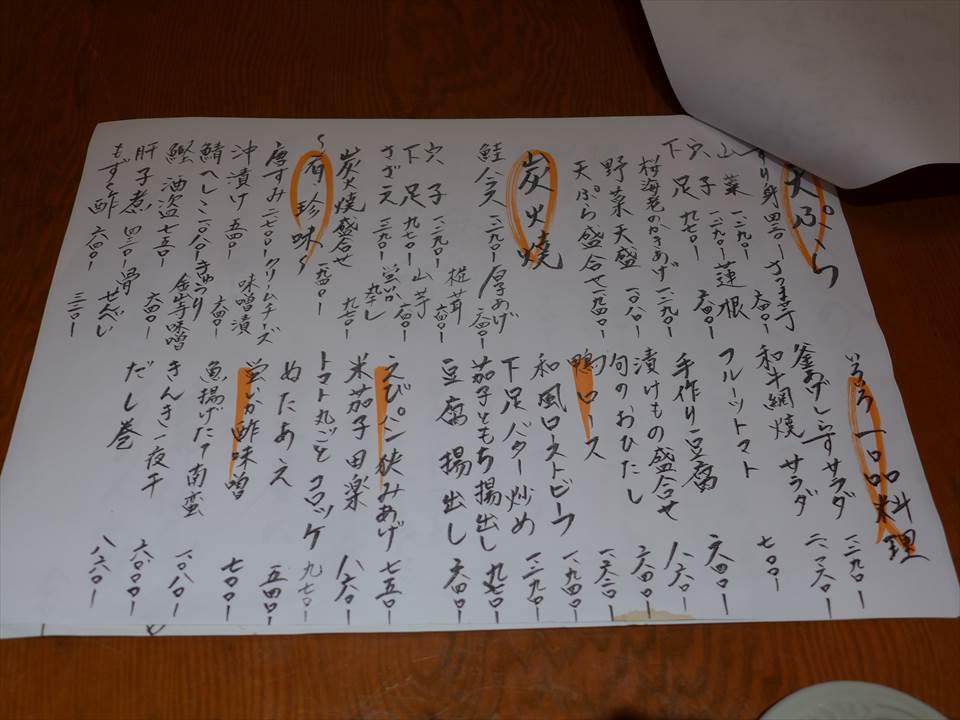 天ぷら
すり身 四三〇ー さつま芋 六四〇ー
山菜 一.二九〇ー 蓮根 六四〇ー
穴子 一.二九〇ー
下足 九七〇ー
桜海老のかきあげ 一.二九〇ー
野菜天盛 一.〇八〇ー
天ぷら盛合せ 一.九四〇ー
炭火焼
鮭ハラス 一.二九〇ー 厚あげ 六四〇ー
穴子 一.二九〇ー 椎茸 六四〇ー
下足 九七〇ー 山芋 六四〇ー
さざえ 一.二九〇ー 蛍いか丸干し 九七〇ー
炭火焼盛合せ 一.九四〇ー
〜肴珍味〜
唐すみ 二.七〇〇ー クリームチーズ味噌漬 六四〇ー
沖漬け 五四〇ー
鯖へしこ 一.〇八〇ー きゅうり金山寺味噌 六四〇ー
鰹酒盗 七五〇ー
肝子煮 四三〇ー 滑せんべい 三二〇ー
もずく酢 六四〇ー
いろいろ一品料理
釜あげしらすサラダ 一.二九〇ー
和牛網焼サラダ 二.一六〇ー
フルーツトマト 七〇〇ー
手作り豆腐 六四〇ー
漬けもの盛合せ 八六〇ー
旬のおひたし 六四〇ー
鴨ロース
和風ローストビーフ 一.九四〇ー
下足バター炒め 一.二九〇ー
茄子ともち揚出し 九七〇ー
豆腐揚出し 六四〇ー
えびパン挟みあげ 七五〇ー
米茄子田楽 八六〇ー
トマト丸ごとコロッケ 九七〇ー
ぬたあえ 五四〇ー
蛍いか酢味噌 七〇〇ー
魚揚げたて南蛮 一.〇八〇ー
きんき一夜干
だし巻 八六〇ー